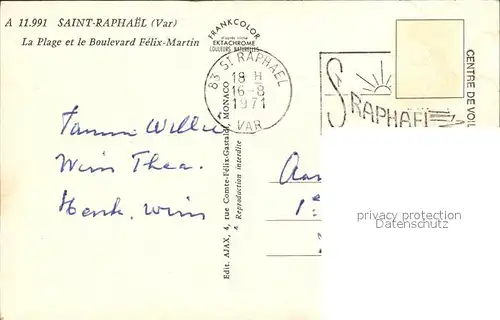 A 11.991 SAINT-RAPHAËL (Var)
La Plage et le Boulevard Félix-Martin
FRANKCOLOR
EKTACHROME
COULEURS NATURELLES
83 ST RAPHAEL
18 H
16-8
1971
VAR
ST RAPHAEL
CENTRE DE VOIL
Edit. AJAX, 4, rue Comte-Félix-Gastaldi, MONACO
Reproduction interdite
Willie
Wim Thea.
Henk. Wim
Aan
1
privacy protection
Datenschutz